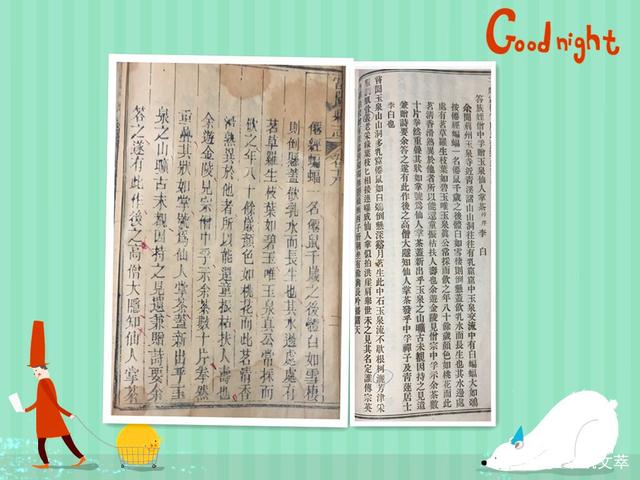 Good night
僊經蝙蝠一名僊鼠千歲之後體白如雪棲
則倒懸蓋飲乳水而長生也其水邊處處有
茗草羅生枝葉如碧玉唯玉泉真公常採而
飲之年八十餘歲顏色如桃花而此茗清香
滑熟異於他者所以能還童振枯扶人壽也
余遊金陵見宗僧中孚示余茶數十片拳然
重疊其狀如掌號爲仙人掌茶蓋新出乎玉
泉之山曠古未覩因持之見遺兼贈詩要余
答之遂有此作後之高僧大隱知仙人掌茶
答族姪僧中孚贈玉泉仙人掌茶 并序 李白
余聞荊州玉泉寺近青溪諸山山洞往往有乳窟窟中玉泉交流中有白蝙蝠大如鴉
按僊經蝙蝠一名僊鼠千歲之後體白如雪棲則倒懸蓋飲乳水而長生也其水邊處
處有茗草羅生枝葉如碧玉唯玉泉真公常採而飲之年八十餘歲顏色如桃花而此
茗清香滑熟異於他者所以能還童振枯扶人壽也余遊金陵見宗僧中孚示余茶數
十片拳然重疊其狀如掌號爲仙人掌茶蓋新出乎玉泉之山曠古未覩因持之見遺
兼贈詩要余答之遂有此作後之高僧大隱知仙人掌茶發乎中孚禪子及青蓮居士
李白也
嘗聞玉泉山山洞多乳窟僊鼠如白鴉倒懸深谿月茗生此中石玉泉流不歇根柯灑芳津采
服潤肌骨叢老卷綠葉枝枝相接連曝成仙人掌似拍洪崖肩舉世未見之其名定誰傳宗英
文萃